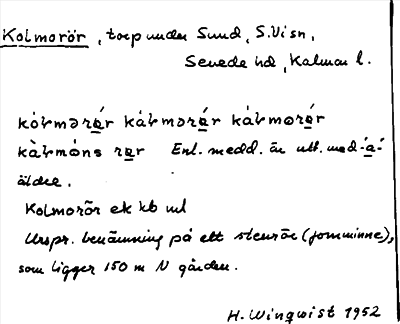 Kolmorör, torp under Sund, S.Vi sn,
Sevede hd, Kalmar l.
kȯ́ɫmərø̲r kȧ́ɫmərǿ̲r kȧ́ɫmɷrǿ̲r
kȧ̀ɫmȯns rø̲r Enl. medd. är utt. med -a̲-
äldre.
Kolmorör ek kb ml
Urspr. benämning på ett stenrör (fornminne),
som ligger 150 m N gården.
H. Winqwist 1952